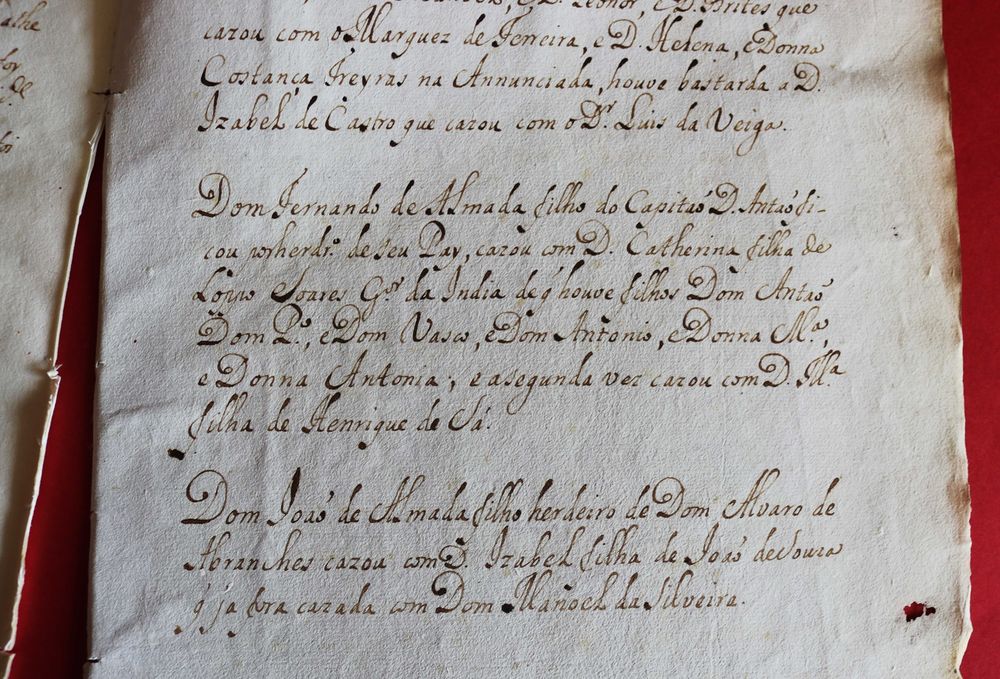 Leonor, e D. Brites que
cazou com o Marquez de Ferreira, e D. Helena, e Donna
Costança Freyras na Annunciada, houve bastarda a D.
Izabel de Castro que cazou com o D.r Luis da Veiga.
Dom Fernando de Almada filho do Capitaõ D. Antaõ fi-
cou por herdr.o de seu Pay, cazou com D. Catherina filha de
Lopo Soares G.or da India de q̃ houve filhos Dom Antaõ
Dom P.o, e Dom Vasco, e Dom Antonio, e Donna M.a,
e Donna Antonia, e a segunda vez cazou com D. M.a
filha de Henrique de Sá.
Dom Joaõ de Almada filho herdeiro de Dom Alvaro de
Abranches cazou com D. Izabel filha de Joaõ de Souza
q̃ ja fora cazada com Dom Manoel da Silveira.